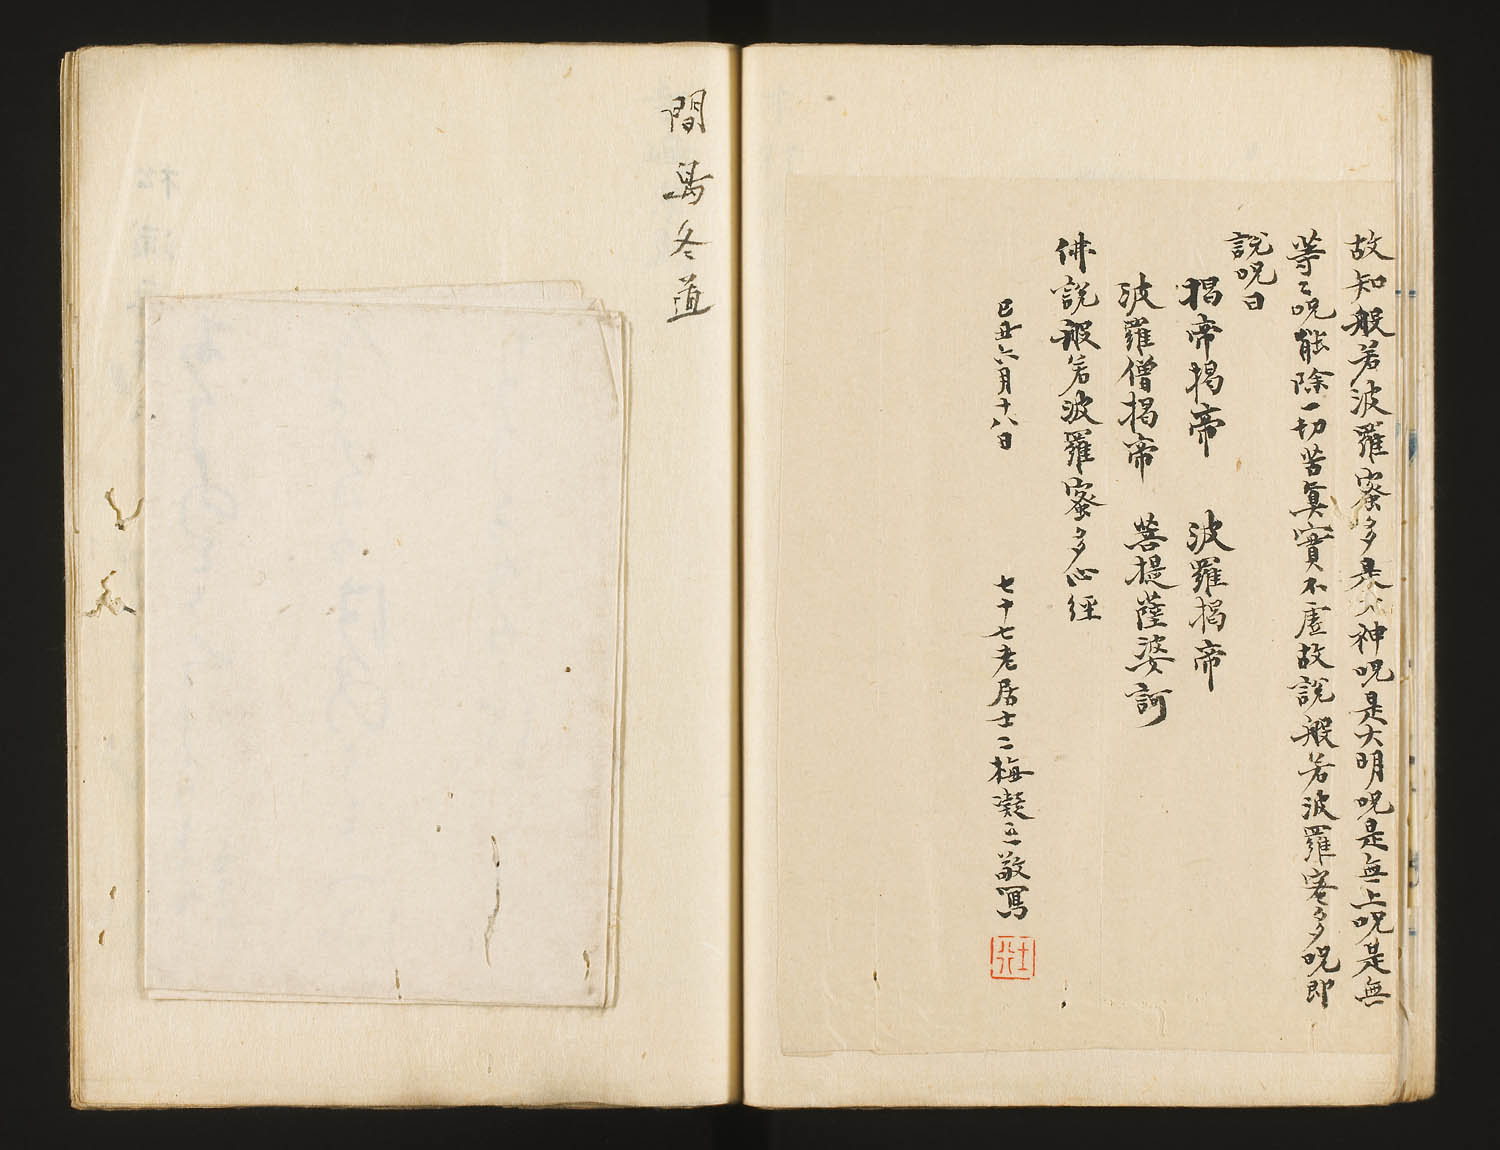 故知般若波羅蜜多是大神呪是大明呪是無上呪是無
等〻呪能除一切苦真實不虛故説般若波羅蜜多呪即
説呪曰
揭帝揭帝　波羅揭帝
波羅僧揭帝　菩提薩婆訶
佛説般若波羅蜜多心經
己丑六月十八日
七十七老居士二梅凝三敬寫
間島冬道